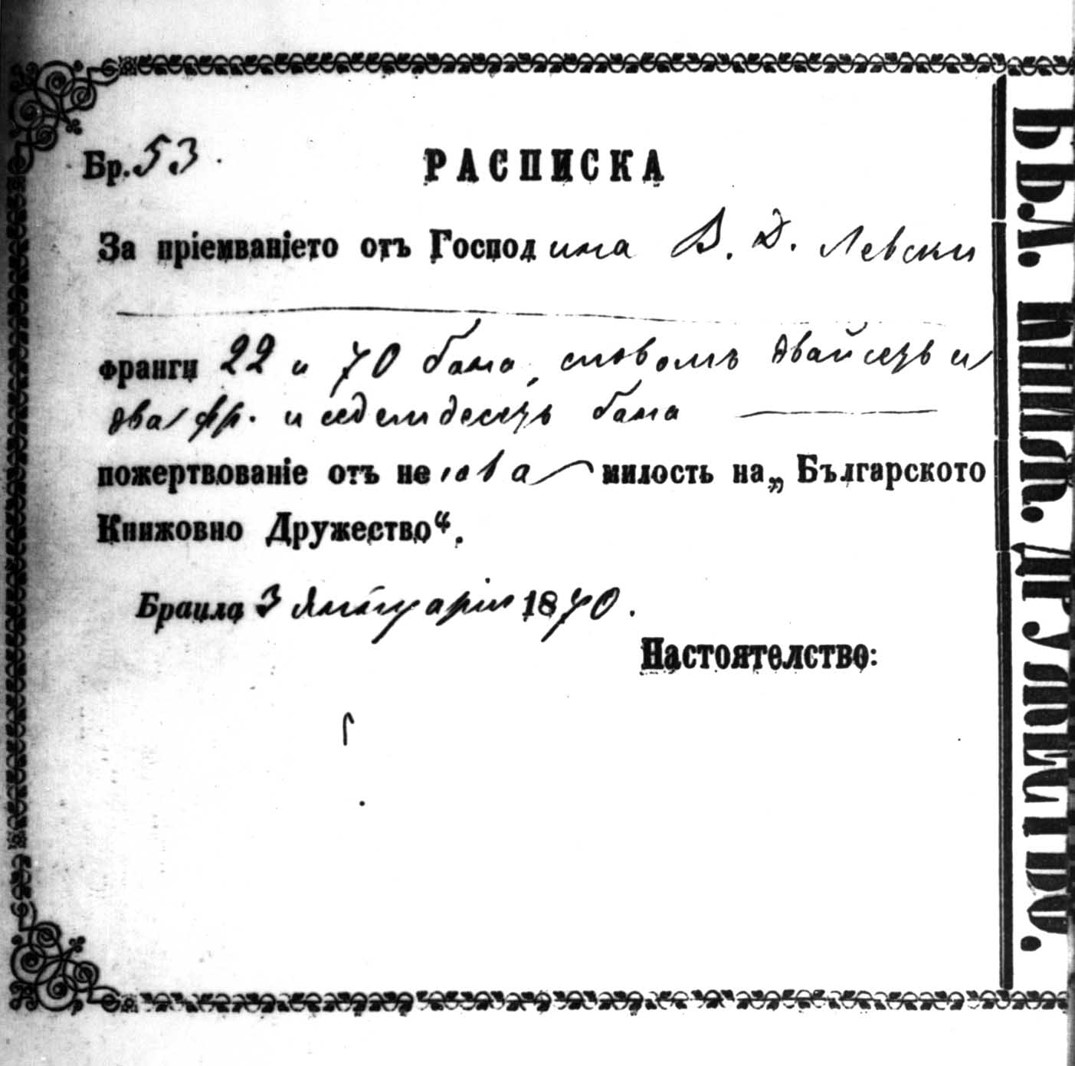 Бр. 53.
РАСПИСКА
За пріемваніето отъ Господина В. Д. Левски
франги 22 и 70 бана, словомъ двайсетъ и
два фр. и седемдесетъ бана
пожертвованіе отъ негова милость на „Българското
Книжовно Дружество“.
Браила 3 Януарія 1870.
Настоятелство:
БЪЛ. КНИЖ. ДРУЖЕСТВО.